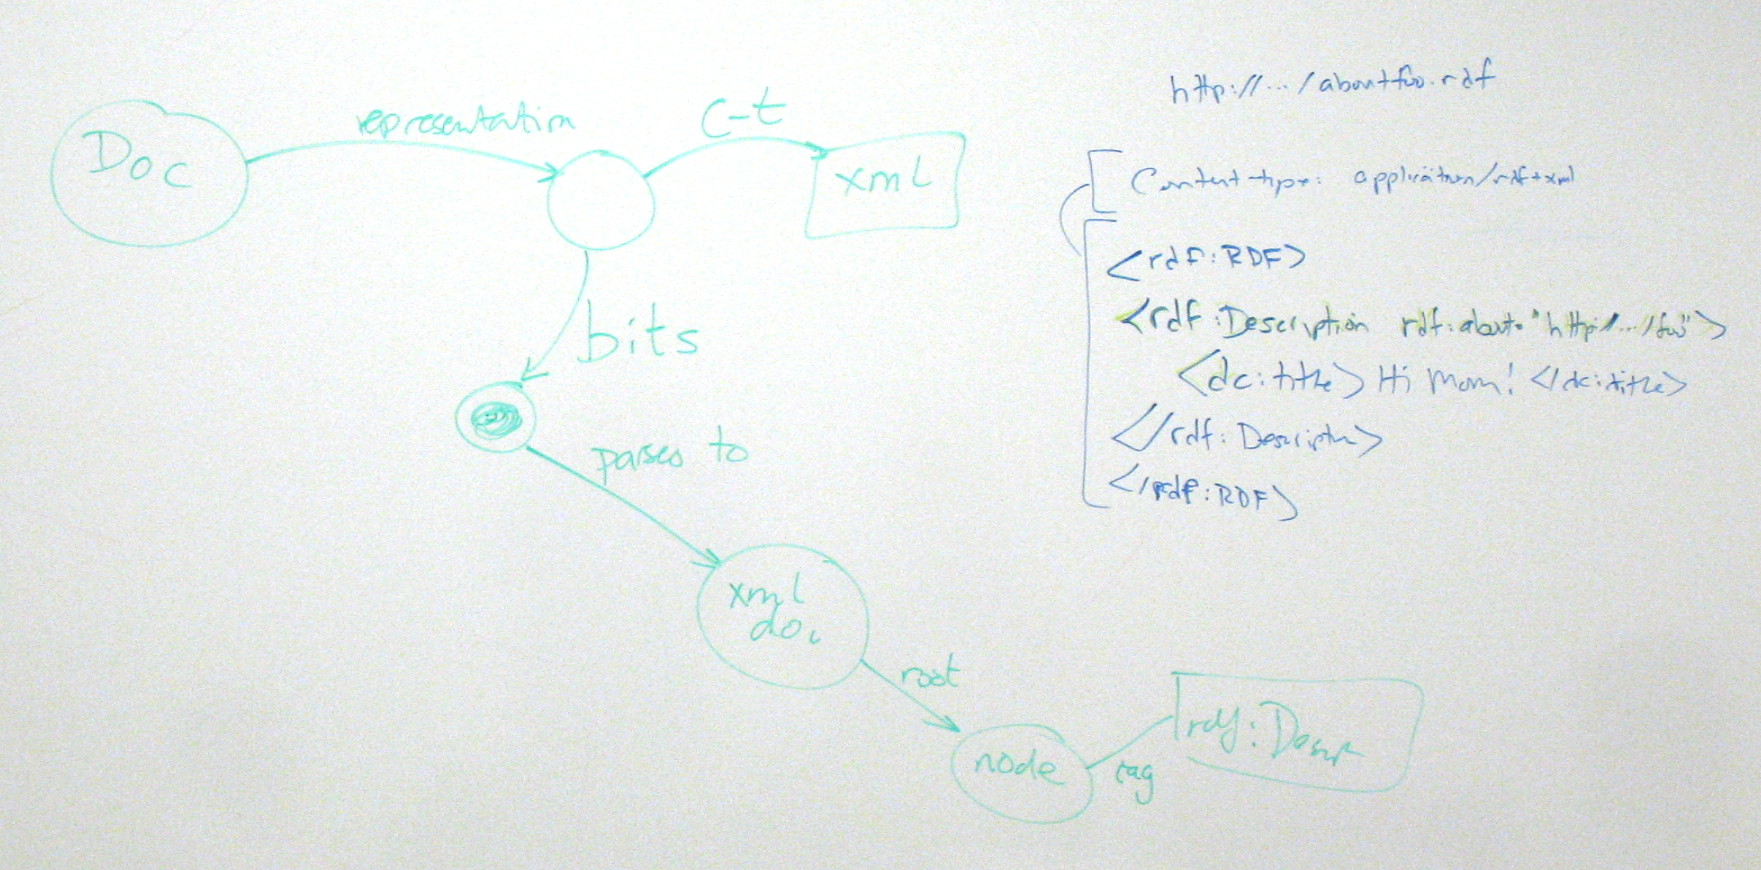 Doc
representation
c-t
xml
bits
parses to
xml
doc
root
node
tag
rdf:Descr
http://.../aboutfoo.rdf
Content-type: application/rdf+xml
<rdf:RDF>
<rdf:Description rdf:about="http://.../foo">
<dc:title>Hi Mom!</dc:title>
</rdf:Description>
</rdf:RDF>